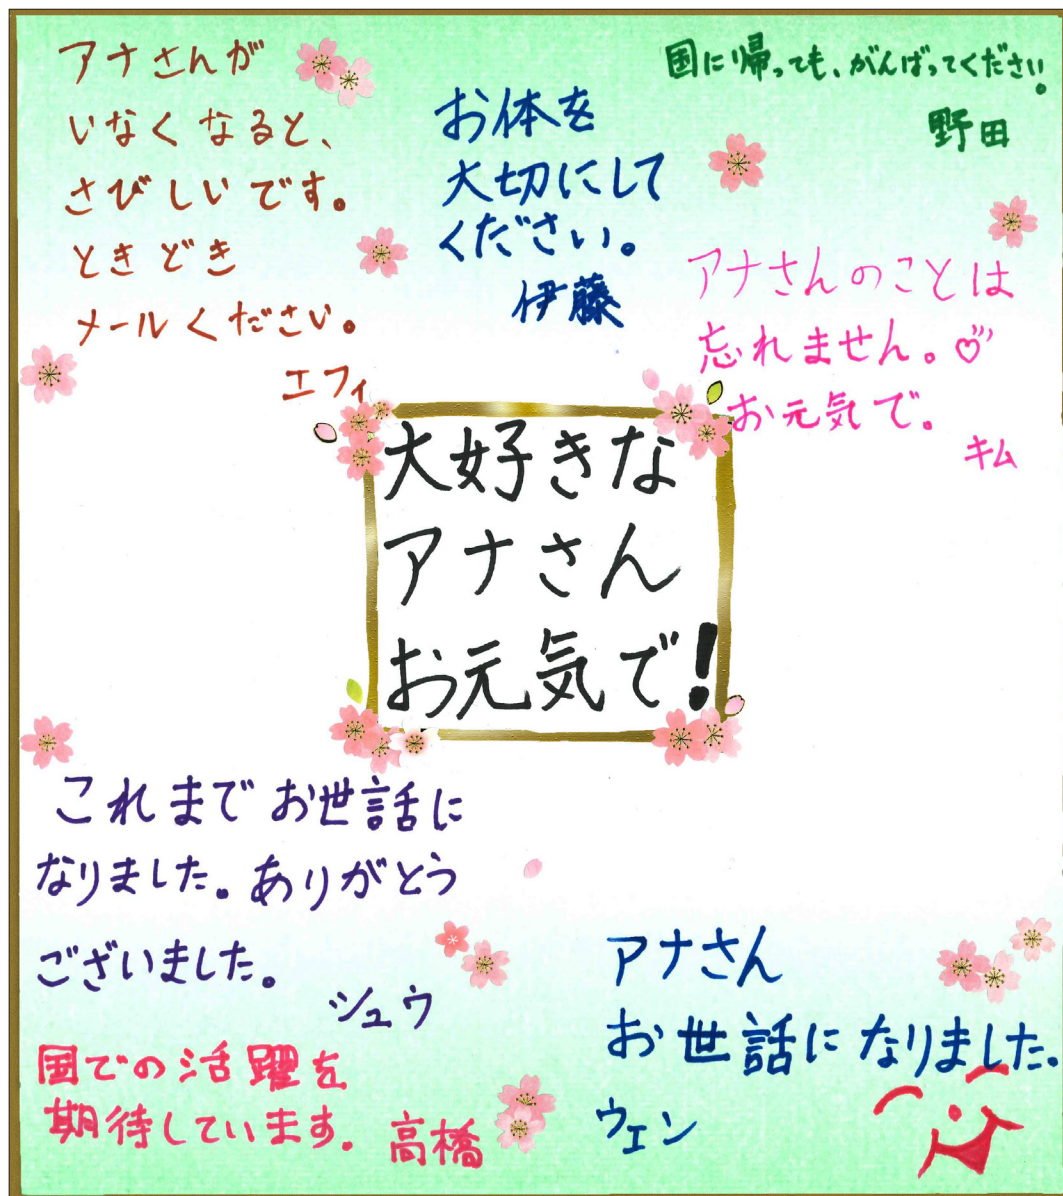 アナさんが
いなくなると、
さびしいです。
ときどき
メールください。
エフィ
お体を
大切にして
ください。
伊藤
国に帰っても、がんばってください。
野田
アナさんのことは
忘れません。♡
お元気で。
キム
大好きな
アナさん
お元気で!
これまでお世話に
なりました。ありがとう
ございました。
シュウ
国での活躍を
期待しています。高橋
アナさん
お世話になりました。
ウェン